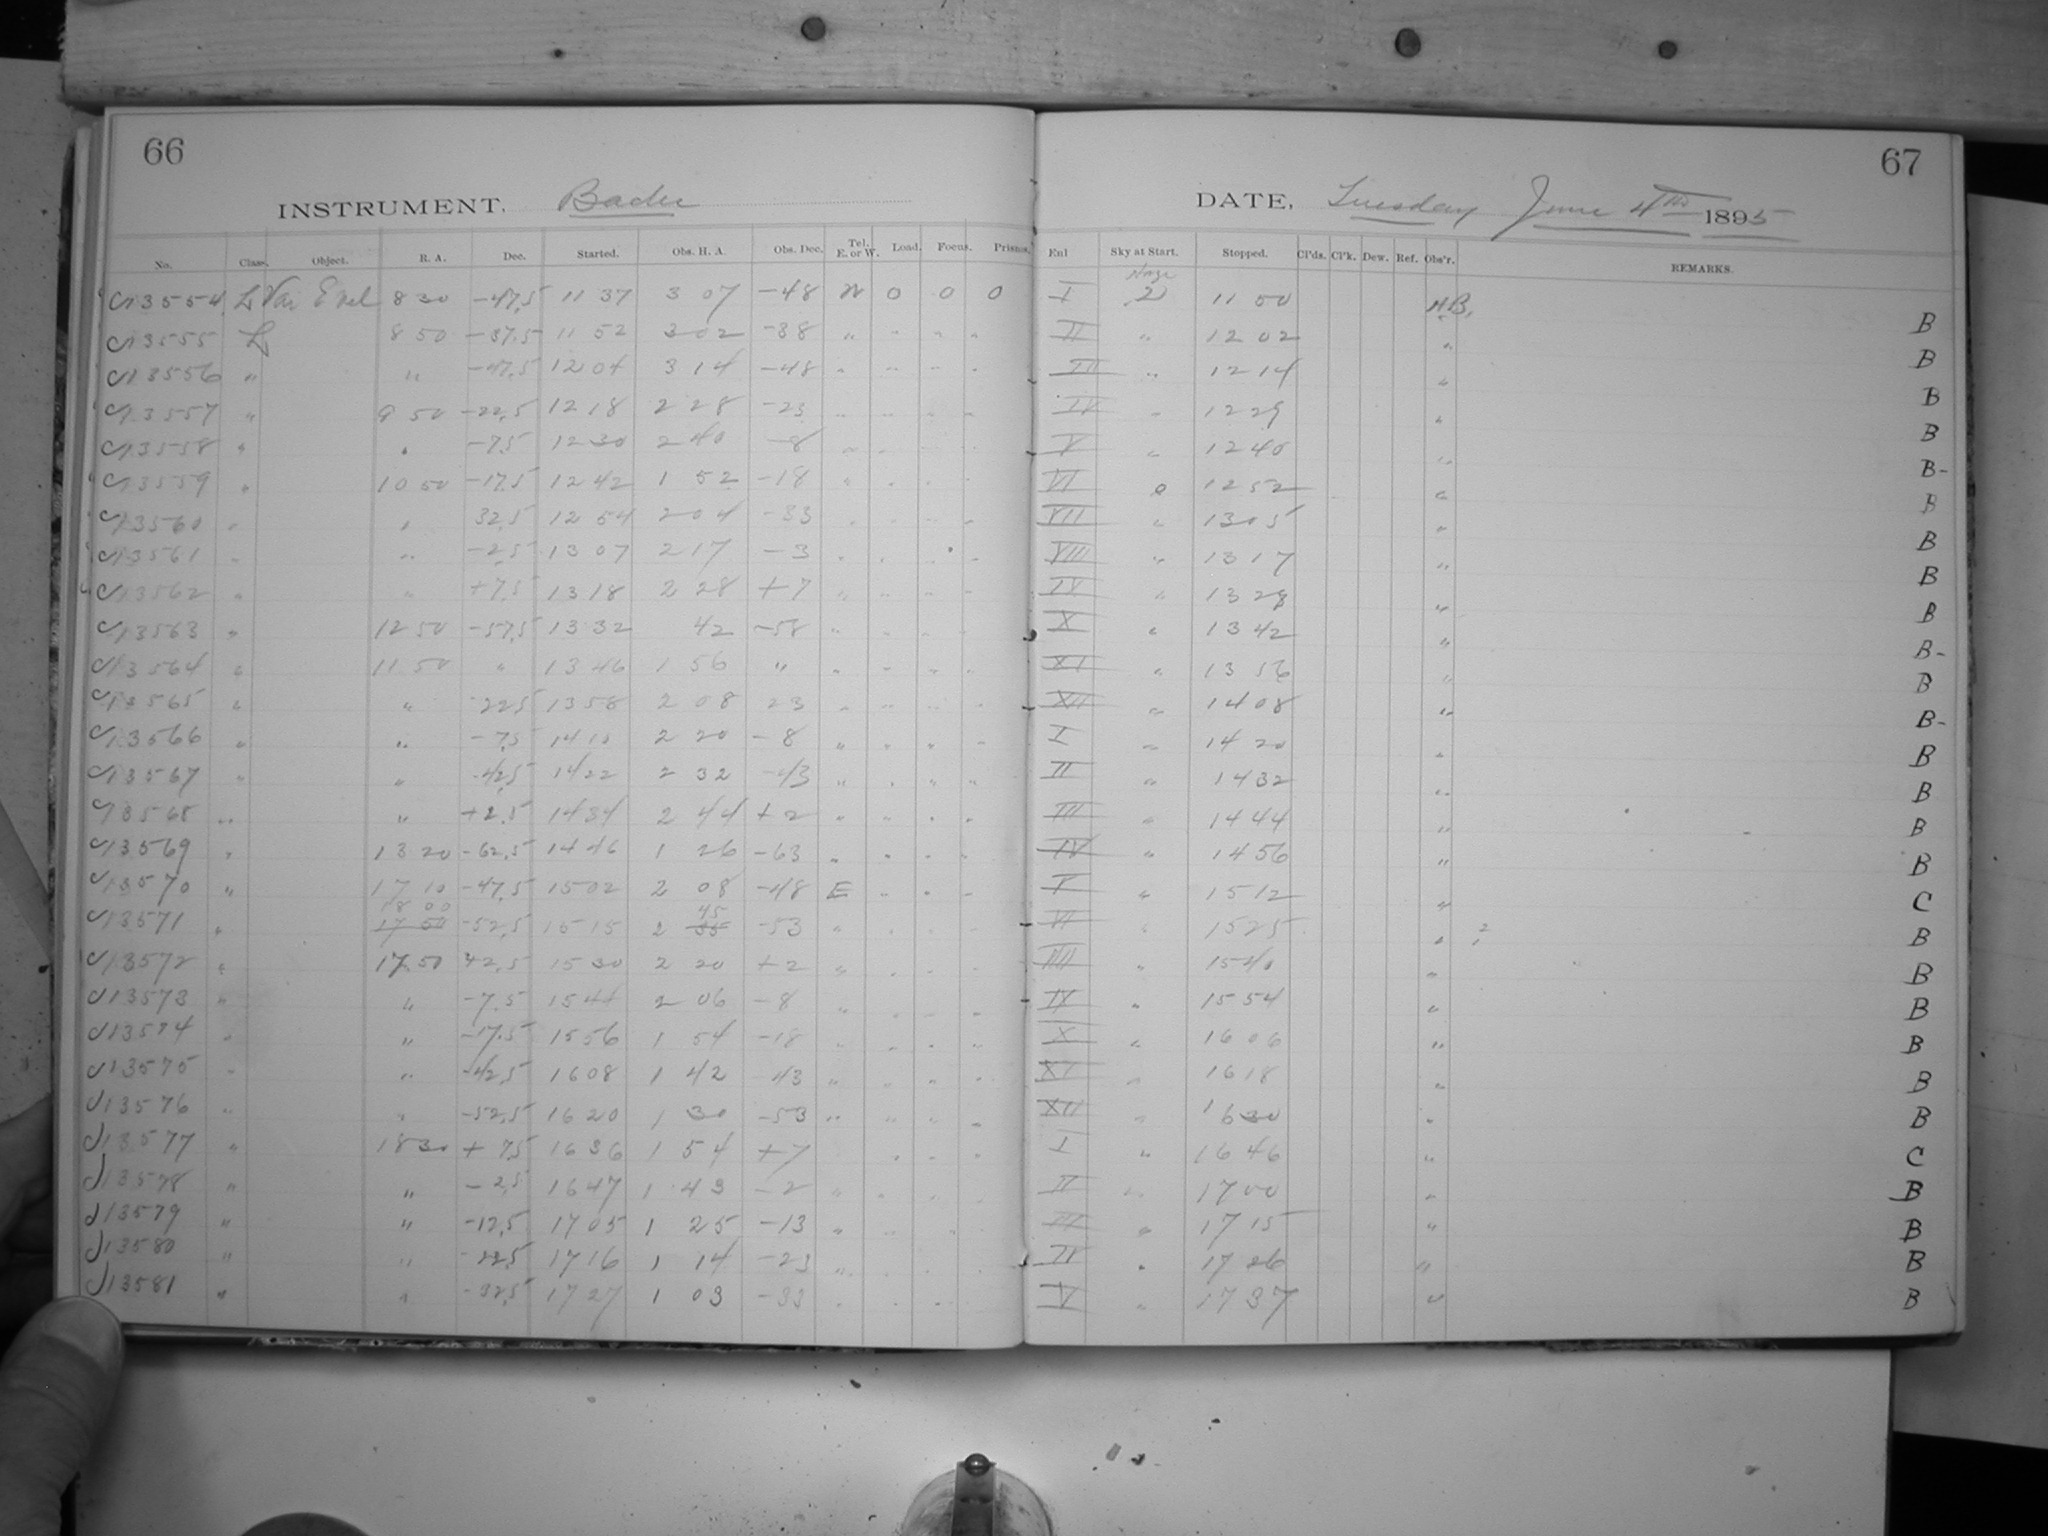 66
INSTRUMENT. Bache
No. Class. Object. R. A. Dec. Started. Obs. H. A. Obs. Dec. Tel. E. or W. Load. Focus. Prisms.
13554 L Var 8 30 -47.5 11 37 3 07 -48 W 0 0 0
13555 L 8 50 -37.5 11 52 3 02 -38 " " " "
13556 " " -47.5 12 04 3 14 -48 " " " "
13557 " 9 50 -22.5 12 18 2 28 -23 " " " "
13558 " " -7.5 12 30 2 40 -8 " " " "
13559 " 10 50 -17.5 12 42 1 52 -18 " " " "
13560 " " 32.5 12 54 2 04 -33 " " " "
13561 " " -2.5 13 07 2 17 -3 " " " "
13562 " " +7.5 13 18 2 28 +7 " " " "
13563 " 12 50 -57.5 13 32 42 -58 " " " "
13564 " 11 50 " 13 46 1 56 " " " " "
13565 " " -22.5 13 58 2 08 23 " " " "
13566 " " -7.5 14 10 2 20 -8 " " " "
13567 " " -42.5 14 22 2 32 -43 " " " "
13568 " " +2.5 14 34 2 44 +2 " " " "
13569 " 13 20 -62.5 14 46 1 26 -63 " " " "
13570 " 17 10 -47.5 15 02 2 08 -48 E " " "
18 00 45
13571 " 17 50 -52.5 15 15 2 35 -53 " " " "
13572 " 17 50 +2.5 15 30 2 20 +2 " " " "
13573 " " -7.5 15 44 2 06 -8 " " " "
13574 " " -17.5 15 56 1 54 -18 " " " "
13575 " " -42.5 16 08 1 42 -43 " " " "
13576 " " -52.5 16 20 1 30 -53 " " " "
13577 " 18 30 +7.5 16 36 1 54 +7 " " "
13578 " " -2.5 16 47 1 43 -2 " " " "
13579 " " -12.5 17 05 1 25 -13 " " " "
13580 " " -22.5 17 16 1 14 -23 " " " "
13581 " " -32.5 17 27 1 03 -33 " " " "
67
DATE, Tuesday June 4th 1895
Enl Sky at Start. Stopped. Cl'ds. Cl'k. Dew. Ref. Obs'r. REMARKS.
Haze
I 2 11 50 H.B. B
II " 12 02 " B
III " 12 14 " B
IV " 12 29 " B
V " 12 40 " B-
VI 0 12 52 " B
VII " 13 05 " B
VIII " 13 17 " B
IX " 13 28 " B
X " 13 42 " B-
XI " 13 56 " B
XII " 14 08 " B-
I " 14 20 " B
II " 14 32 " B
III " 14 44 " B
IV " 14 56 " B
V " 15 12 " C
VI " 15 25 " B
VIII " 15 40 " B
IX " 15 54 " B
X " 16 06 " B
XI " 16 18 " B
XII " 16 30 " B
I " 16 46 " C
II " 17 00 " B
III " 17 15 " B
IV " 17 26 " B
V " 17 37 " B